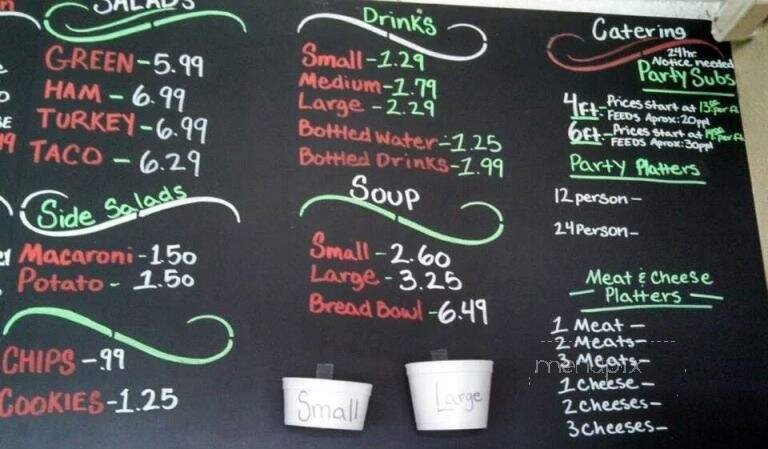 SALADS
GREEN-5.99
HAM - 6.99
TURKEY-6.99
TACO - 6.29
Side Salads
Macaroni-1.50
Potato - 1.50
CHIPS -.99
COOKIES-1.25
Drinks
Small-1.29
Medium-1.79
Large -2.29
Bottled Water-1.25
Bottled Drinks-1.99
Soup
Small-2.60
Large-3.25
Bread Bowl-6.49
Small
Large
Catering
24hr.
Notice needed
Party Subs
4ft. Prices start at
FEEDS Aprox:20ppl
6ft. Prices start at
FEEDS Aprox:30ppl
Party Platters
12 person-
24 Person-
Meat & Cheese
Platters
1 Meat-
2 Meats-
3 Meats-
1 cheese-
2 cheeses-
3 cheeses-
menupix